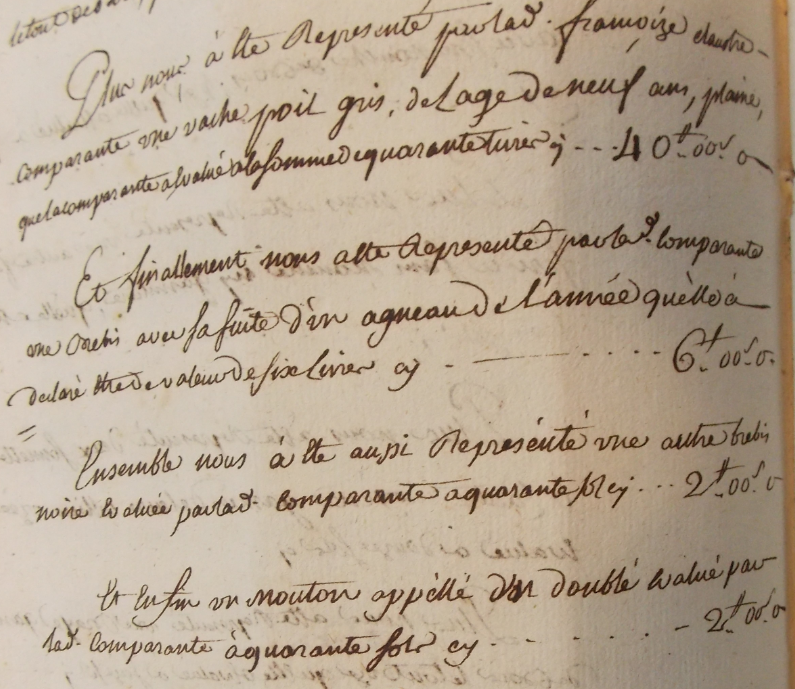 Plus nous à Ete Representé parlad. francoize claustre
comparante une vache poil gris, de Lage De neuf ans, plaine,
que la comparante a Evalué a la somme de quarante Livres cy - - - 40tt. 00s. 0
Et finallement nous a Ete Representé par lad. Comparante
une Brebis avec sa suite D'un agneau De L'année qu'elle à
Declaré Etre De valeur De six Livres cy - - - 6tt. 00s. 0.
Ensemble nous à Ete aussi Représénté une autre brebis
noire Evaluée par lad. Comparante a quarante sols cy - - - 2tt. 00s. 0
Et Enfin un Mouton appéllé doublé Evalué par
lad. Comparante à quarante sols cy - - - 2tt. 00s. 0